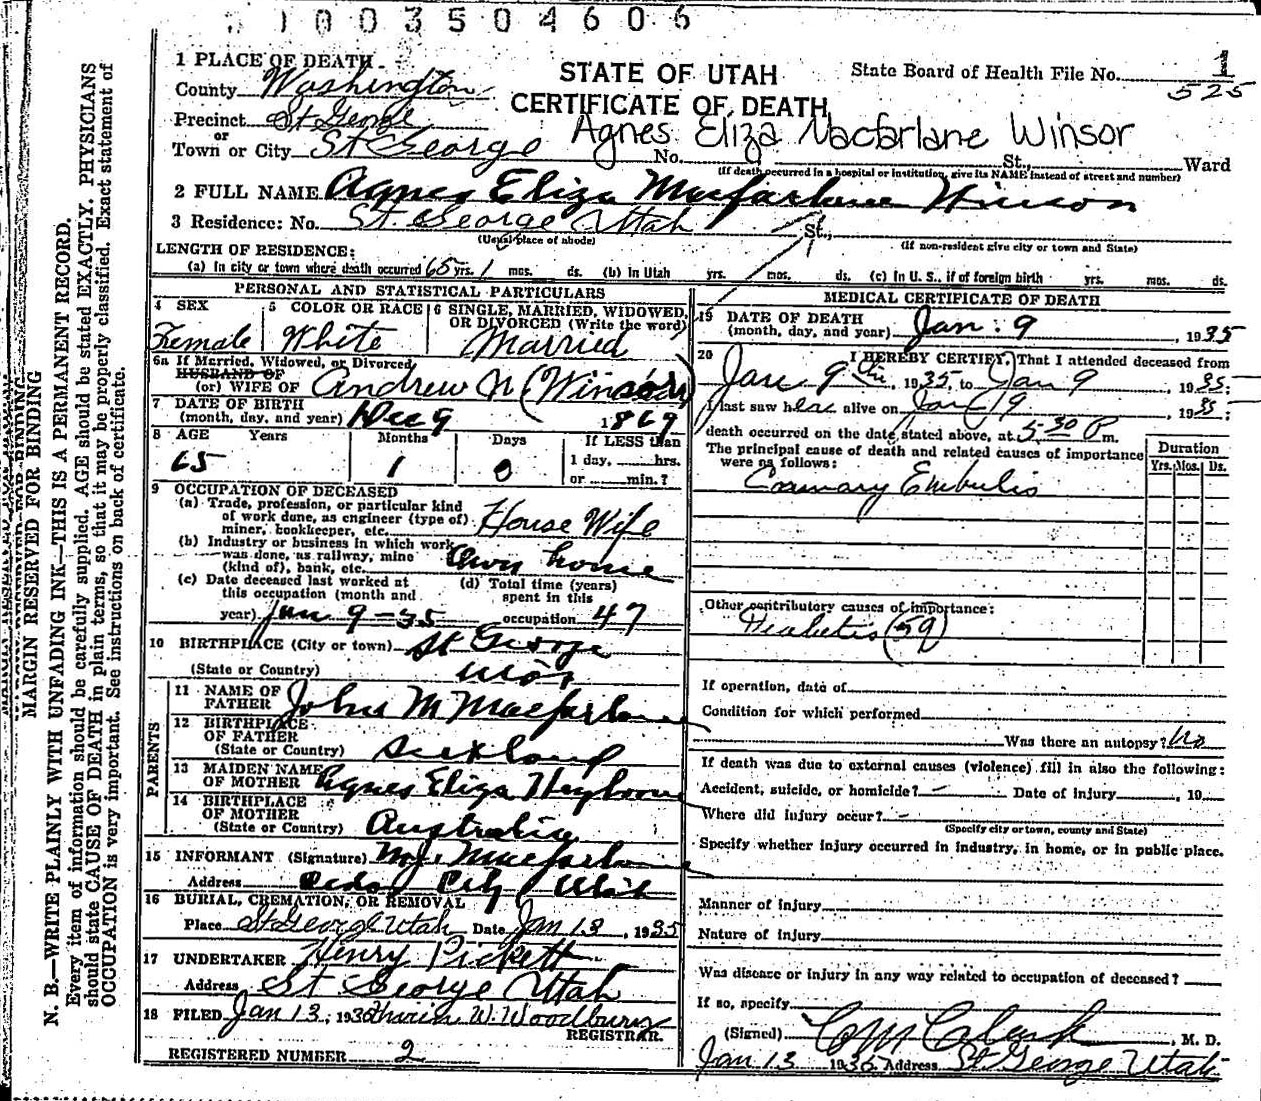 1003504606
1 PLACE OF DEATH
STATE OF UTAH
State Board of Health File No. 1
525
County Washington
CERTIFICATE OF DEATH
Precinct St George
or
Agnes Eliza Macfarlane Winsor
Town or City St George No. St., Ward
(If death occurred in a hospital or institution, give its NAME instead of street and number)
2 FULL NAME Agnes Eliza Macfarlane Winsor
3 Residence: No. St. George Utah St.,
(Usual place of abode) (If non-resident give city or town and State)
LENGTH OF RESIDENCE:
(a) In city or town where death occurred 65 yrs. 1 mos. ds. (b) in Utah yrs. mos. ds. (c) in U. S., if of foreign birth yrs. mos. ds.
PERSONAL AND STATISTICAL PARTICULARS
4 SEX
Female
5 COLOR OR RACE
White
6 SINGLE, MARRIED, WIDOWED,
OR DIVORCED (Write the word)
Married
6a If Married, Widowed, or Divorced
HUSBAND OF
(or) WIFE OF Andrew N (Winsor)
7 DATE OF BIRTH
(month, day, and year) Dec 9 1869
8 AGE Years Months Days If LESS than
65 1 0 1 day, hrs.
or min.?
9 OCCUPATION OF DECEASED
(a) Trade, profession, or particular kind
of work done, as engineer (type of)
miner, bookkeeper, etc. House Wife
(b) Industry or business in which work
was done, as railway, mine
(kind of), bank, etc. Own home
(c) Date deceased last worked at
this occupation (month and
year) Jan 9-35
(d) Total time (years)
spent in this
occupation 47
10 BIRTHPLACE (City or town) St George
(State or Country) Utah
PARENTS
11 NAME OF
FATHER John M Macfarlane
12 BIRTHPLACE
OF FATHER
(State or Country) Scotland
13 MAIDEN NAME
OF MOTHER Agnes Eliza Heyborne
14 BIRTHPLACE
OF MOTHER
(State or Country) Australia
15 INFORMANT (Signature) M.J. Macfarlane
Address Cedar City Utah
16 BURIAL, CREMATION, OR REMOVAL
Place St George Utah Date Jan 13, 1935
17 UNDERTAKER Henry Pickett
Address St George Utah
18 FILED Jan 13, 1935 W. Woodbury
REGISTRAR.
REGISTERED NUMBER 2
MEDICAL CERTIFICATE OF DEATH
19 DATE OF DEATH
(month, day, and year) Jan. 9, 1935
20 I HEREBY CERTIFY, That I attended deceased from
Jan 9th, 1935, to Jan 9, 1935;
I last saw her alive on Jan 9, 1935;
death occurred on the date stated above, at 5:30 P m.
The principal cause of death and related causes of importance
were as follows:
Duration
Yrs. Mos. Ds.
Coronary Embulis
Other contributory causes of importance:
Diabetis (59)
If operation, date of
Condition for which performed
Was there an autopsy? No
If death was due to external causes (violence) fill in also the following:
Accident, suicide, or homicide? - Date of injury, 19
Where did injury occur? -
(Specify city or town, county and State)
Specify whether injury occurred in industry, in home, or in public place.
Manner of injury
Nature of injury
Was disease or injury in any way related to occupation of deceased?
If so, specify
(Signed) , M. D.
Jan 13 1935 Address St George Utah
MARGIN RESERVED FOR BINDING
N. B.—WRITE PLAINLY WITH UNFADING INK—THIS IS A PERMANENT RECORD.
Every item of information should be carefully supplied. AGE should be stated EXACTLY. PHYSICIANS
should state CAUSE OF DEATH in plain terms, so that it may be properly classified. Exact statement of
OCCUPATION is very important. See instructions on back of certificate.